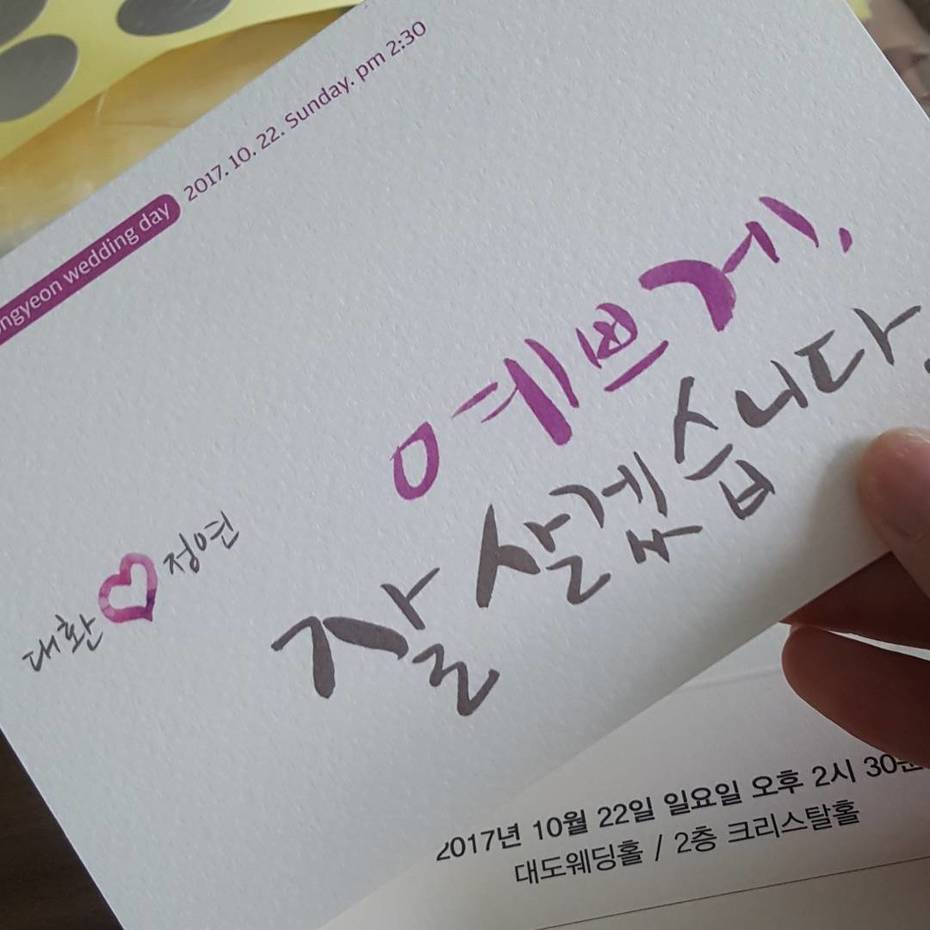 wedding day 2017. 10. 22. Sunday. pm 2:30
예쁘게,
잘 살겠습니다.
대환 정연
2017년 10월 22일 일요일 오후 2시 30분
대도웨딩홀 / 2층 크리스탈홀